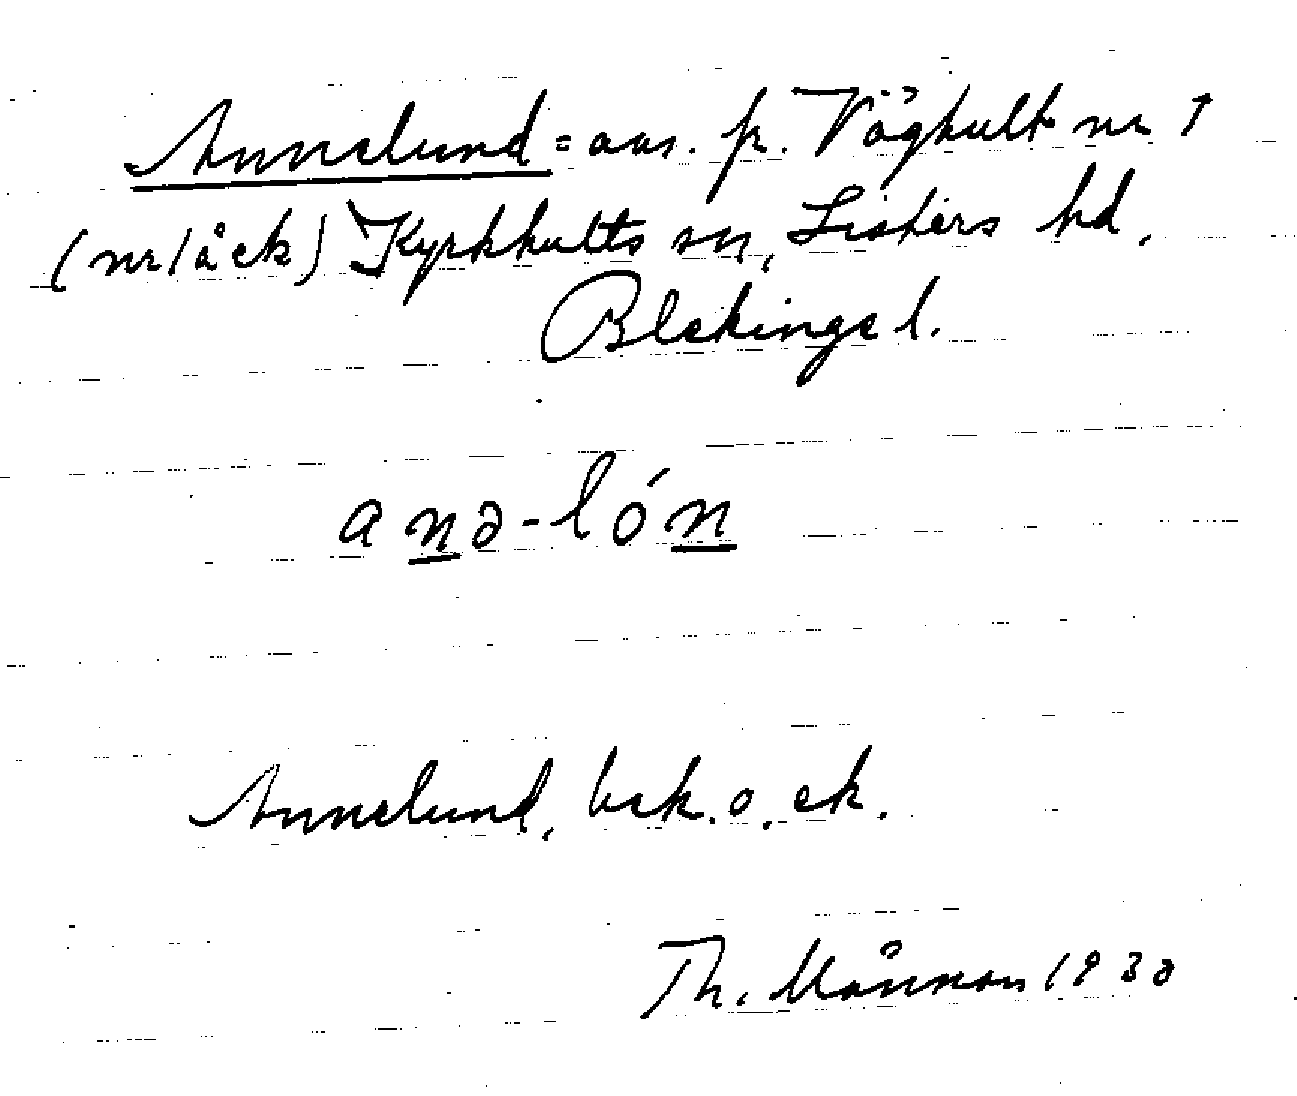 Annelund = avs. fr. Våghult nr 1
(nr 1 åck) Kyrkhults sn, Listers hd,
Blekinge l.
anə-lón
Annelund, bek. o. ek.
Th. Månsson 1930